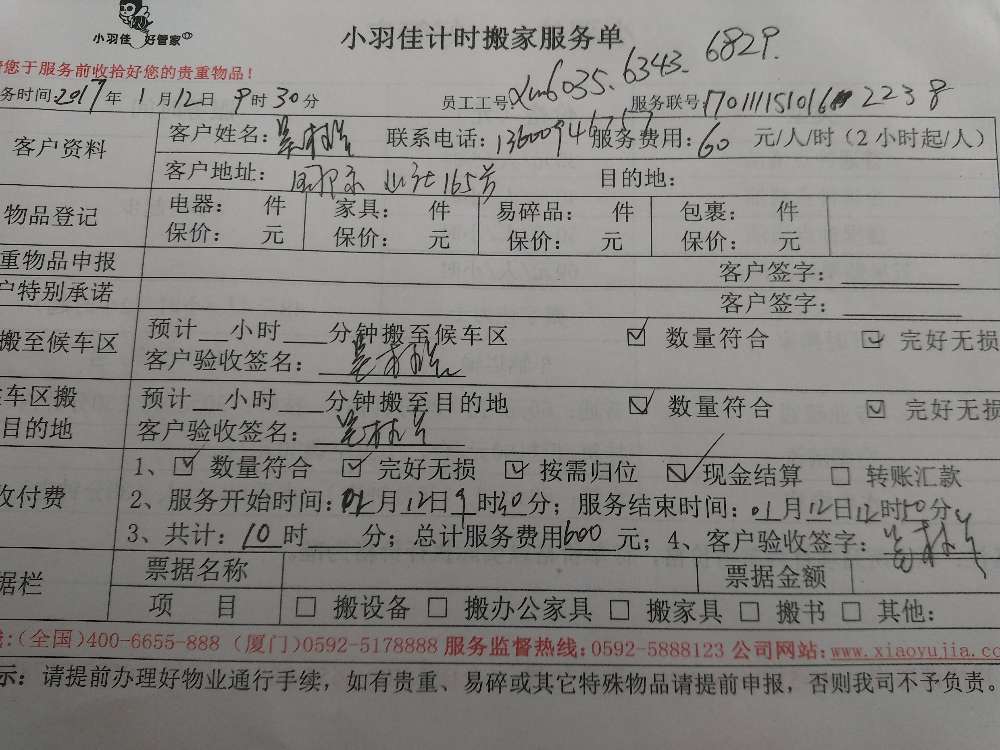 小羽佳 好管家
小羽佳计时搬家服务单
您于服务前收拾好您的贵重物品!
务时间:2017年 1月12日 9时30分 员工工号: xm6035. 6343. 6829. 服务联号: 2238
客户资料 客户姓名: 联系电话: 服务费用:60 元/人/时(2小时起/人)
客户地址: 165号 目的地:
物品登记 电器: 件 家具: 件 易碎品: 件 包裹: 件
保价: 元 保价: 元 保价: 元 保价: 元
重物品申报 客户签字:
户特别承诺 客户签字:
搬至候车区 预计__小时___分钟搬至候车区 ☑ 数量符合 ☑ 完好无损
客户验收签名:
车区搬 预计__小时___分钟搬至目的地 ☑ 数量符合 ☑ 完好无损
目的地 客户验收签名:
收付费 1、☑ 数量符合 ☑ 完好无损 ☑ 按需归位 ☑ 现金结算 □ 转账汇款
2、服务开始时间:01月12日9时 分;服务结束时间:01月12日12时50分
3、共计:10时____分;总计服务费用600元;4、客户验收签字:
据栏 票据名称 票据金额
项 目 □ 搬设备 □ 搬办公家具 □ 搬家具 □ 搬书 □ 其他:
线:(全国)400-6655-888 (厦门)0592-5178888 服务监督热线:0592-5888123 公司网站:www.xiaoyujia.co
示:请提前办理好物业通行手续,如有贵重、易碎或其它特殊物品请提前申报,否则我司不予负责。